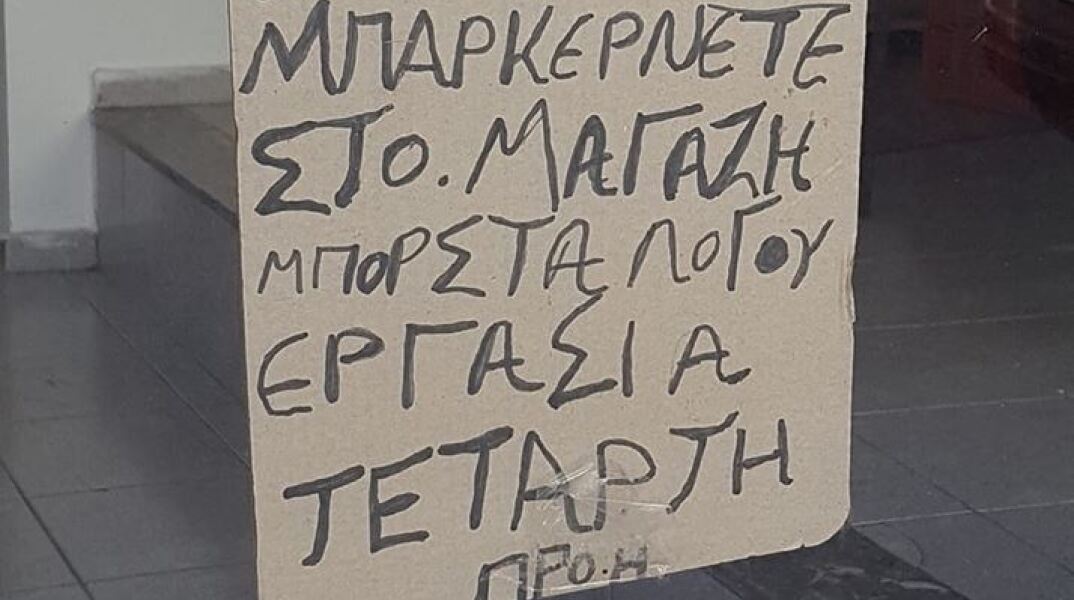 ΜΠΑΡΚΕΡΝΕΤΕ
ΣΤΟ. ΜΑΓΑΖΗ
ΜΠΟΡΣΤΑ ΛΟΓΟΥ
ΕΡΓΑΣΙΑ
ΤΕΤΑΡΤΗ
ΠΡΟ.Η